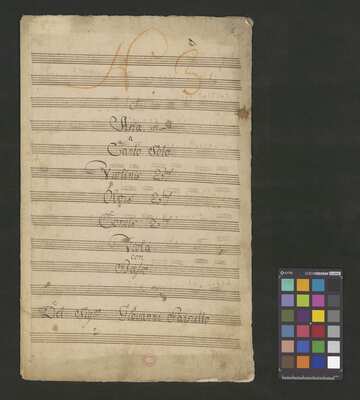 N 3
Aria in
a
Canto Solo
Violini 2
2
Corni 2
Viola
con
Basso
Del Sig Giovanni Paesiello